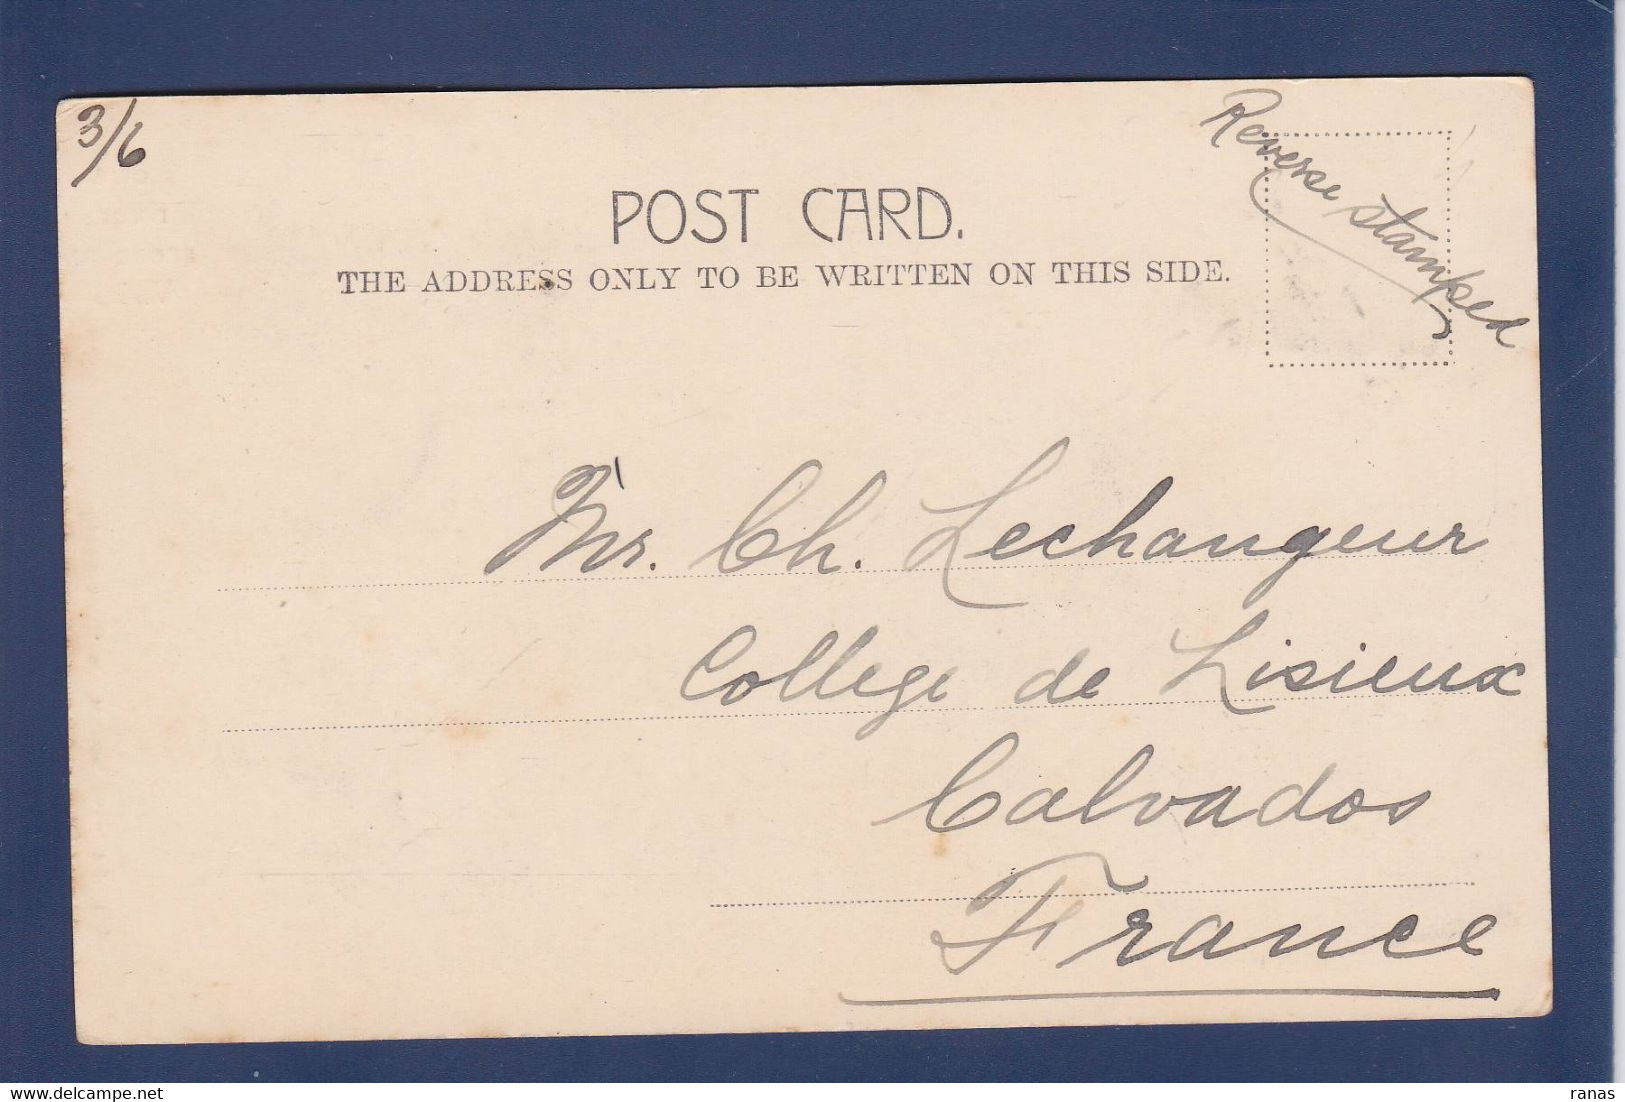 3/6
Reverse stamped
POST CARD.
THE ADDRESS ONLY TO BE WRITTEN ON THIS SIDE.
Mr. Ch. Lechangeur
College de Lisieux
Calvados
France
ranas